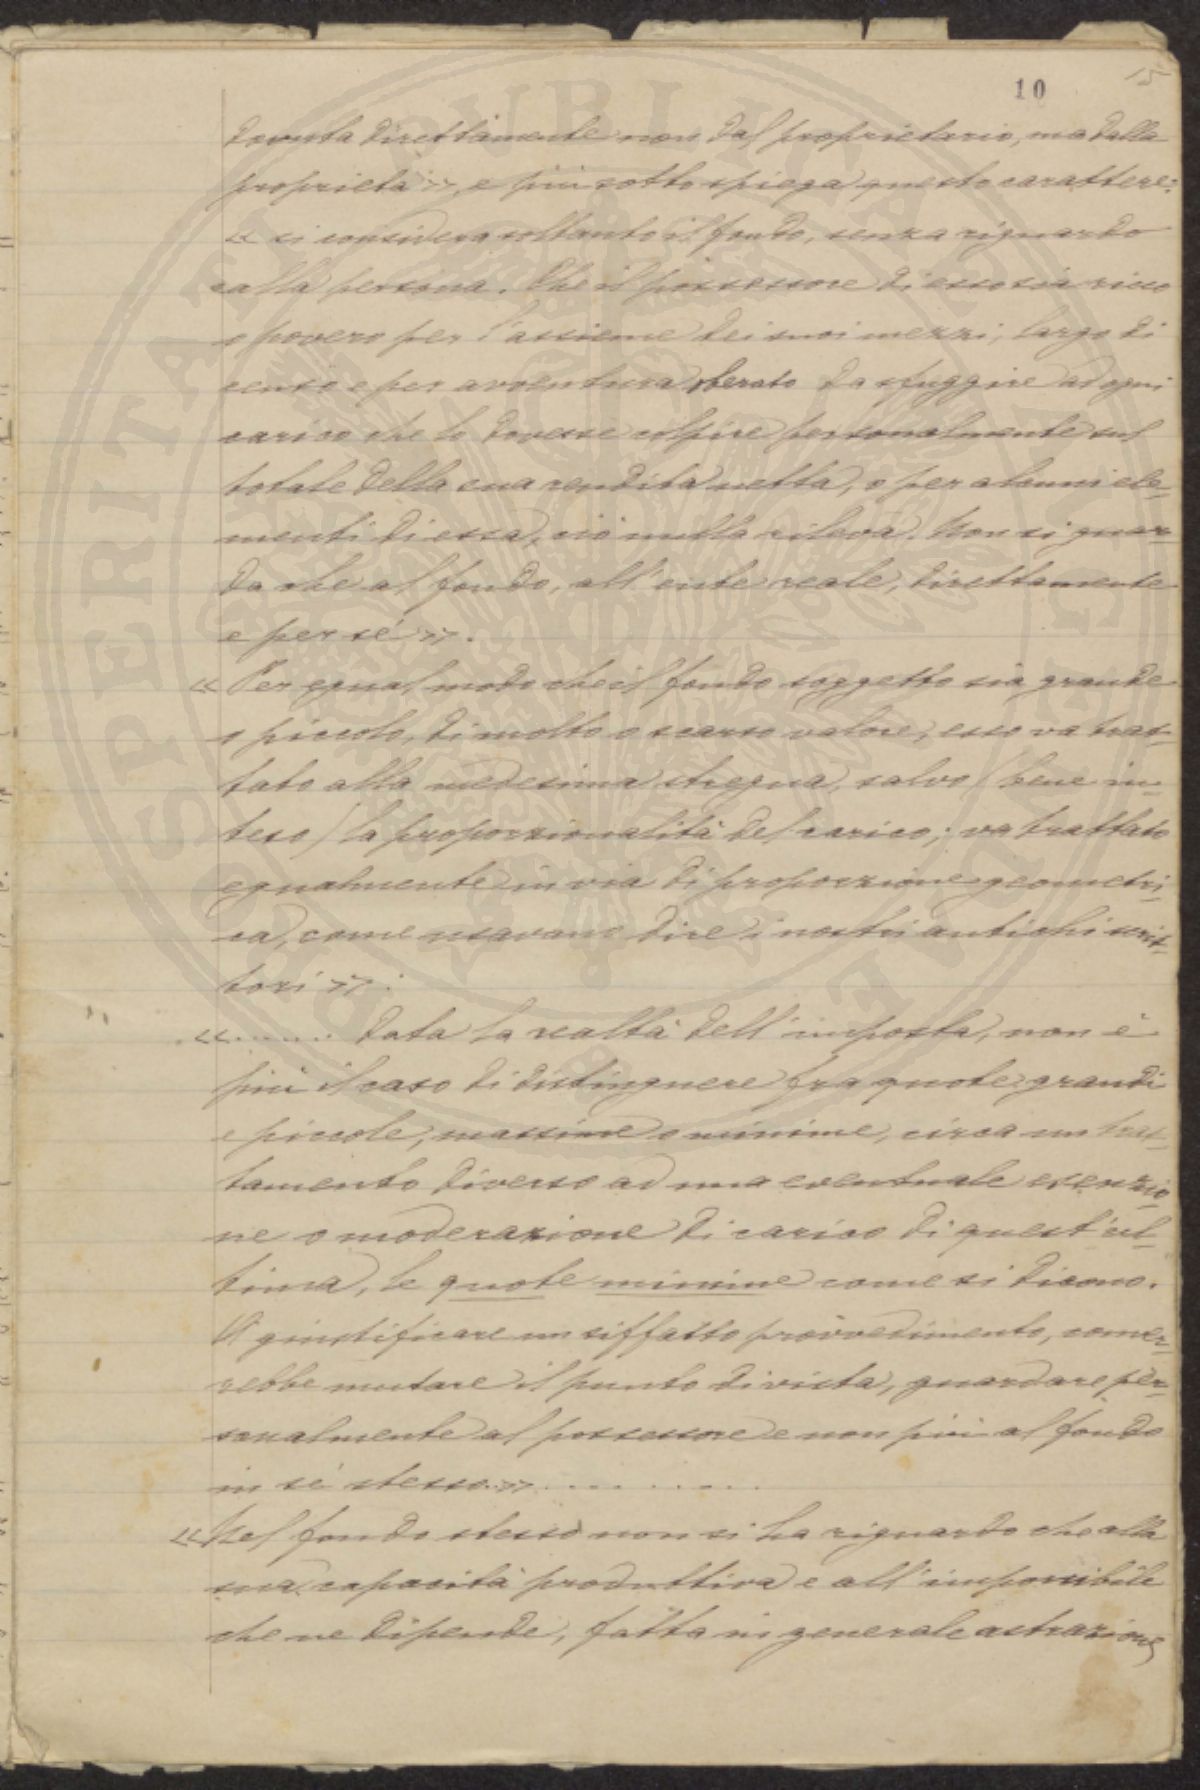 15
10
dovuta direttamente non dal proprietario, ma dalla
proprietà », e più sotto spiega questo carattere:
« si considera soltanto il fondo, senza riguardo
alla persona. Che il possessore di esso sia ricco
o povero per l'assieme dei suoi mezzi, largo di
censo e per avventura oberato da sfuggire ad ogni
carico che lo dovesse colpire personalmente sul
totale della sua rendita netta, o per alcuni ele-
menti di essa, ciò nulla rileva. Non si guar-
da che al fondo, all'ente reale, direttamente
e per sé ».
« Per egual modo che il fondo soggetto sia grande
o piccolo, di molto o scarso valore, esso va trat-
tato alla medesima stregua, salvo (bene in-
teso) la proporzionalità del carico; va trattato
egualmente in via di proporzione geometri-
ca, come usavano dire i nostri antichi scrit-
tori » :
«....... Data la realtà dell'imposta, non è
più il caso di distinguere fra quote grandi
e piccole, massime o minime, circa un trat-
tamento diverso ad una eventuale esenzio-
ne o moderazione di carico di quest'ul-
tima, le quote minime come si dicono.
A giustificare un siffatto provvedimento, conver-
rebbe mutare il punto di vista, guardare per-
sonalmente al possessore e non più al fondo
in sé stesso.» ..........
« Nel fondo stesso non si ha riguardo che alla
sua capacità produttiva e all'imponibile
che ne dipende, fatta in generale astrazione
PROSPERITATI PUBLICAE AUGENDAE